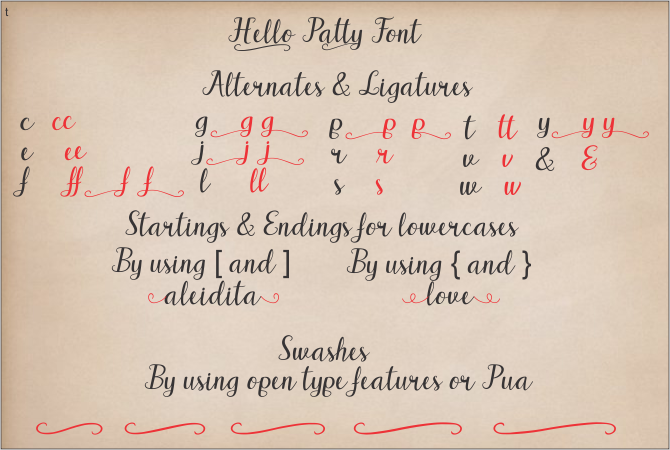 t
Hello Patty Font
Alternates & Ligatures
c cc g g g p p p t tt y y y
e ee j j j r r v v & &
f ff f f l ll s s w w
Startings & Endings for lowercases
By using [ and ] By using { and }
aleidita love
Swashes
By using open type features or Pua